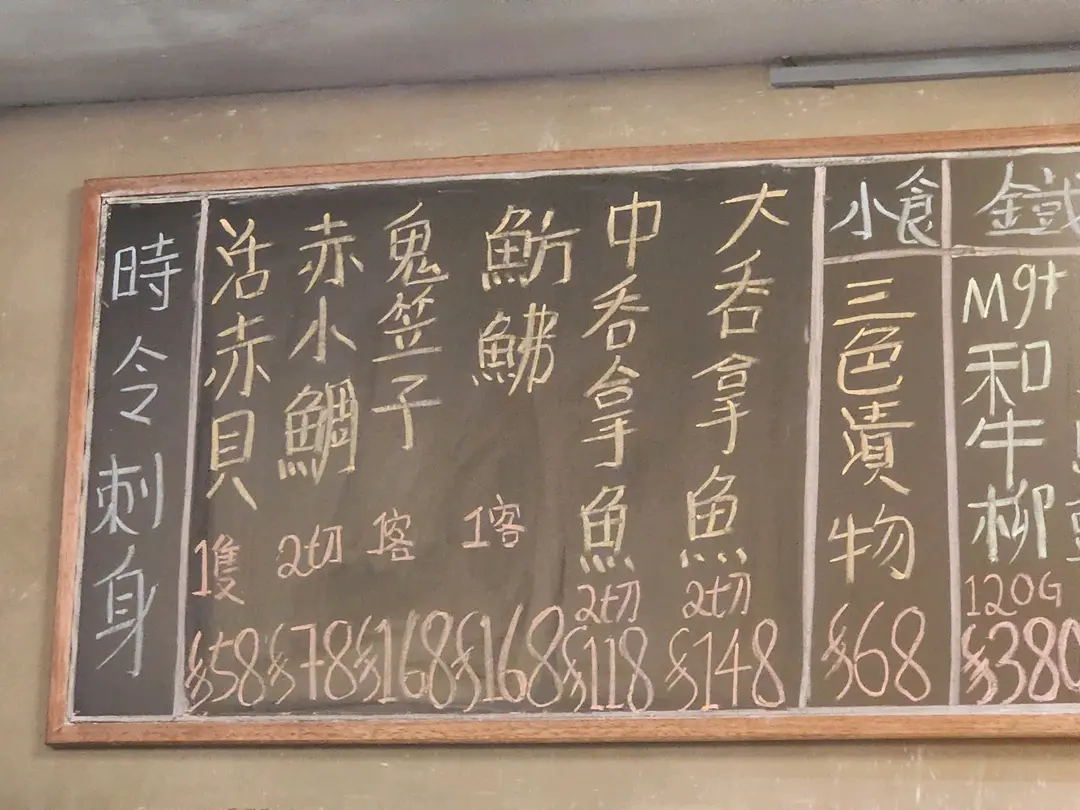 時令刺身
活赤貝
1隻
$58
赤小鯛
2切
$78
鬼笠子
1客
$168
魴鮄
1客
$168
中吞拿魚
2切
$118
大吞拿魚
2切
$148
小食
三色漬物
$68
鐵
M9+
和牛柳
120G
$380